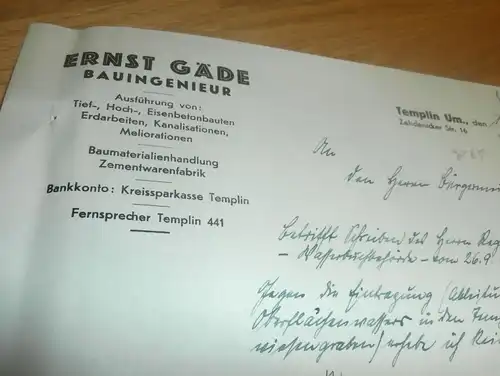 ERNST GÄDE
BAUINGENIEUR
Ausführung von:
Tief-, Hoch-, Eisenbetonbauten
Erdarbeiten, Kanalisationen,
Meliorationen
Baumaterialienhandlung
Zementwarenfabrik
Bankkonto: Kreissparkasse Templin
Fernsprecher Templin 441
Templin Um., den
Zehdenicker Str. 16
An
den Herrn Bürgermei
Betrifft Schreiben des Herrn Reg
- Wasserbuchbehörde - vom 26.9
Gegen die Eintragung (Ableitu
Oberflächenwassers in den Tem
wiesengraben) erhebe ich kei